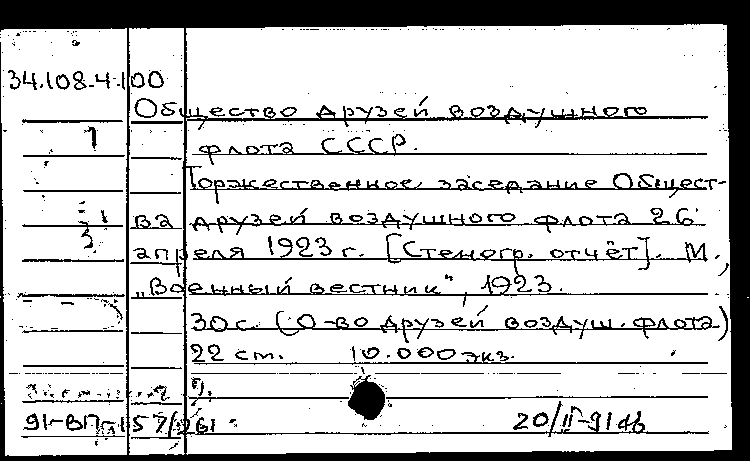 34.108-4.100
Общество друзей воздушного
флота СССР.
Торжественное заседание Общест-
ва друзей воздушного флота 26
апреля 1923 г. [Стеногр. отчёт]. М.,
„Военный вестник", 1923.
30 с. (О-во друзей воздуш. флота)
22 см. 10.000 экз.
20/II-91